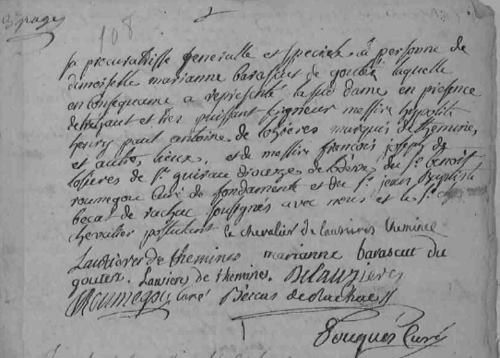 3 pages
108
sa procuratrisse generalle et speciele la personne de
demoiselle marianne barascut de goutés laquelle
en consequance a representé la sud dame en presence
de haut et tres puissant seigneur messire hypolite
henry paul antoine de losieres marquis de themines
et autres lieux, et de messire françois joseph de
losieres de St diocese de du Sr benoit
roumegou curé de fondamente et du Sr jean baptiste
becat de rachac soussignés avec nous et le Sr
chevalier le chevalier de lausieres themines
Lausieres de themines marianne barascut du
goutés. Lausieres de themines. Delauzieres
Roumegou curé Beccat de Rachac
Fouqués curé